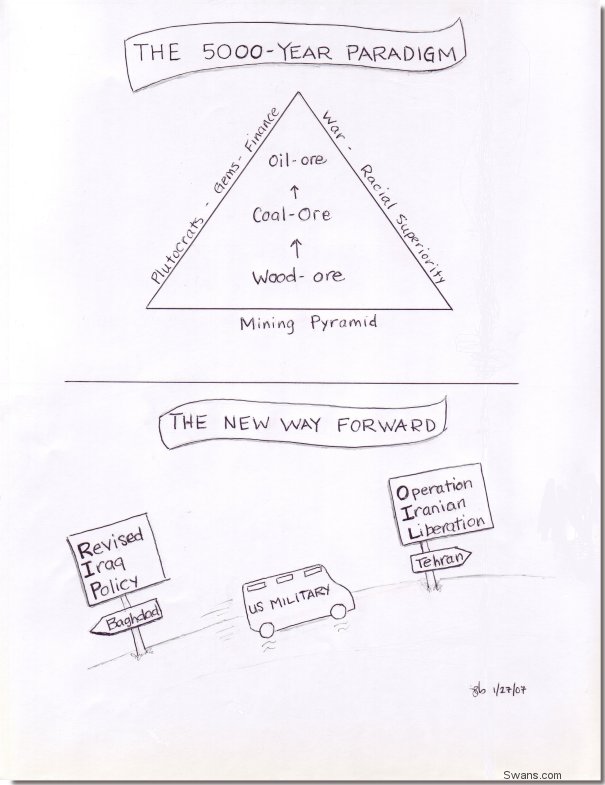 THE 5000-YEAR PARADIGM
Plutocrats - Gems - Finance
War - Racial Superiority
Oil-ore
↑
Coal-Ore
↑
Wood-ore
Mining Pyramid
THE NEW WAY FORWARD
Revised
Iraq
Policy
Baghdad
US MILITARY
Operation
Iranian
Liberation
Tehran
gb 1/27/07
Swans.com